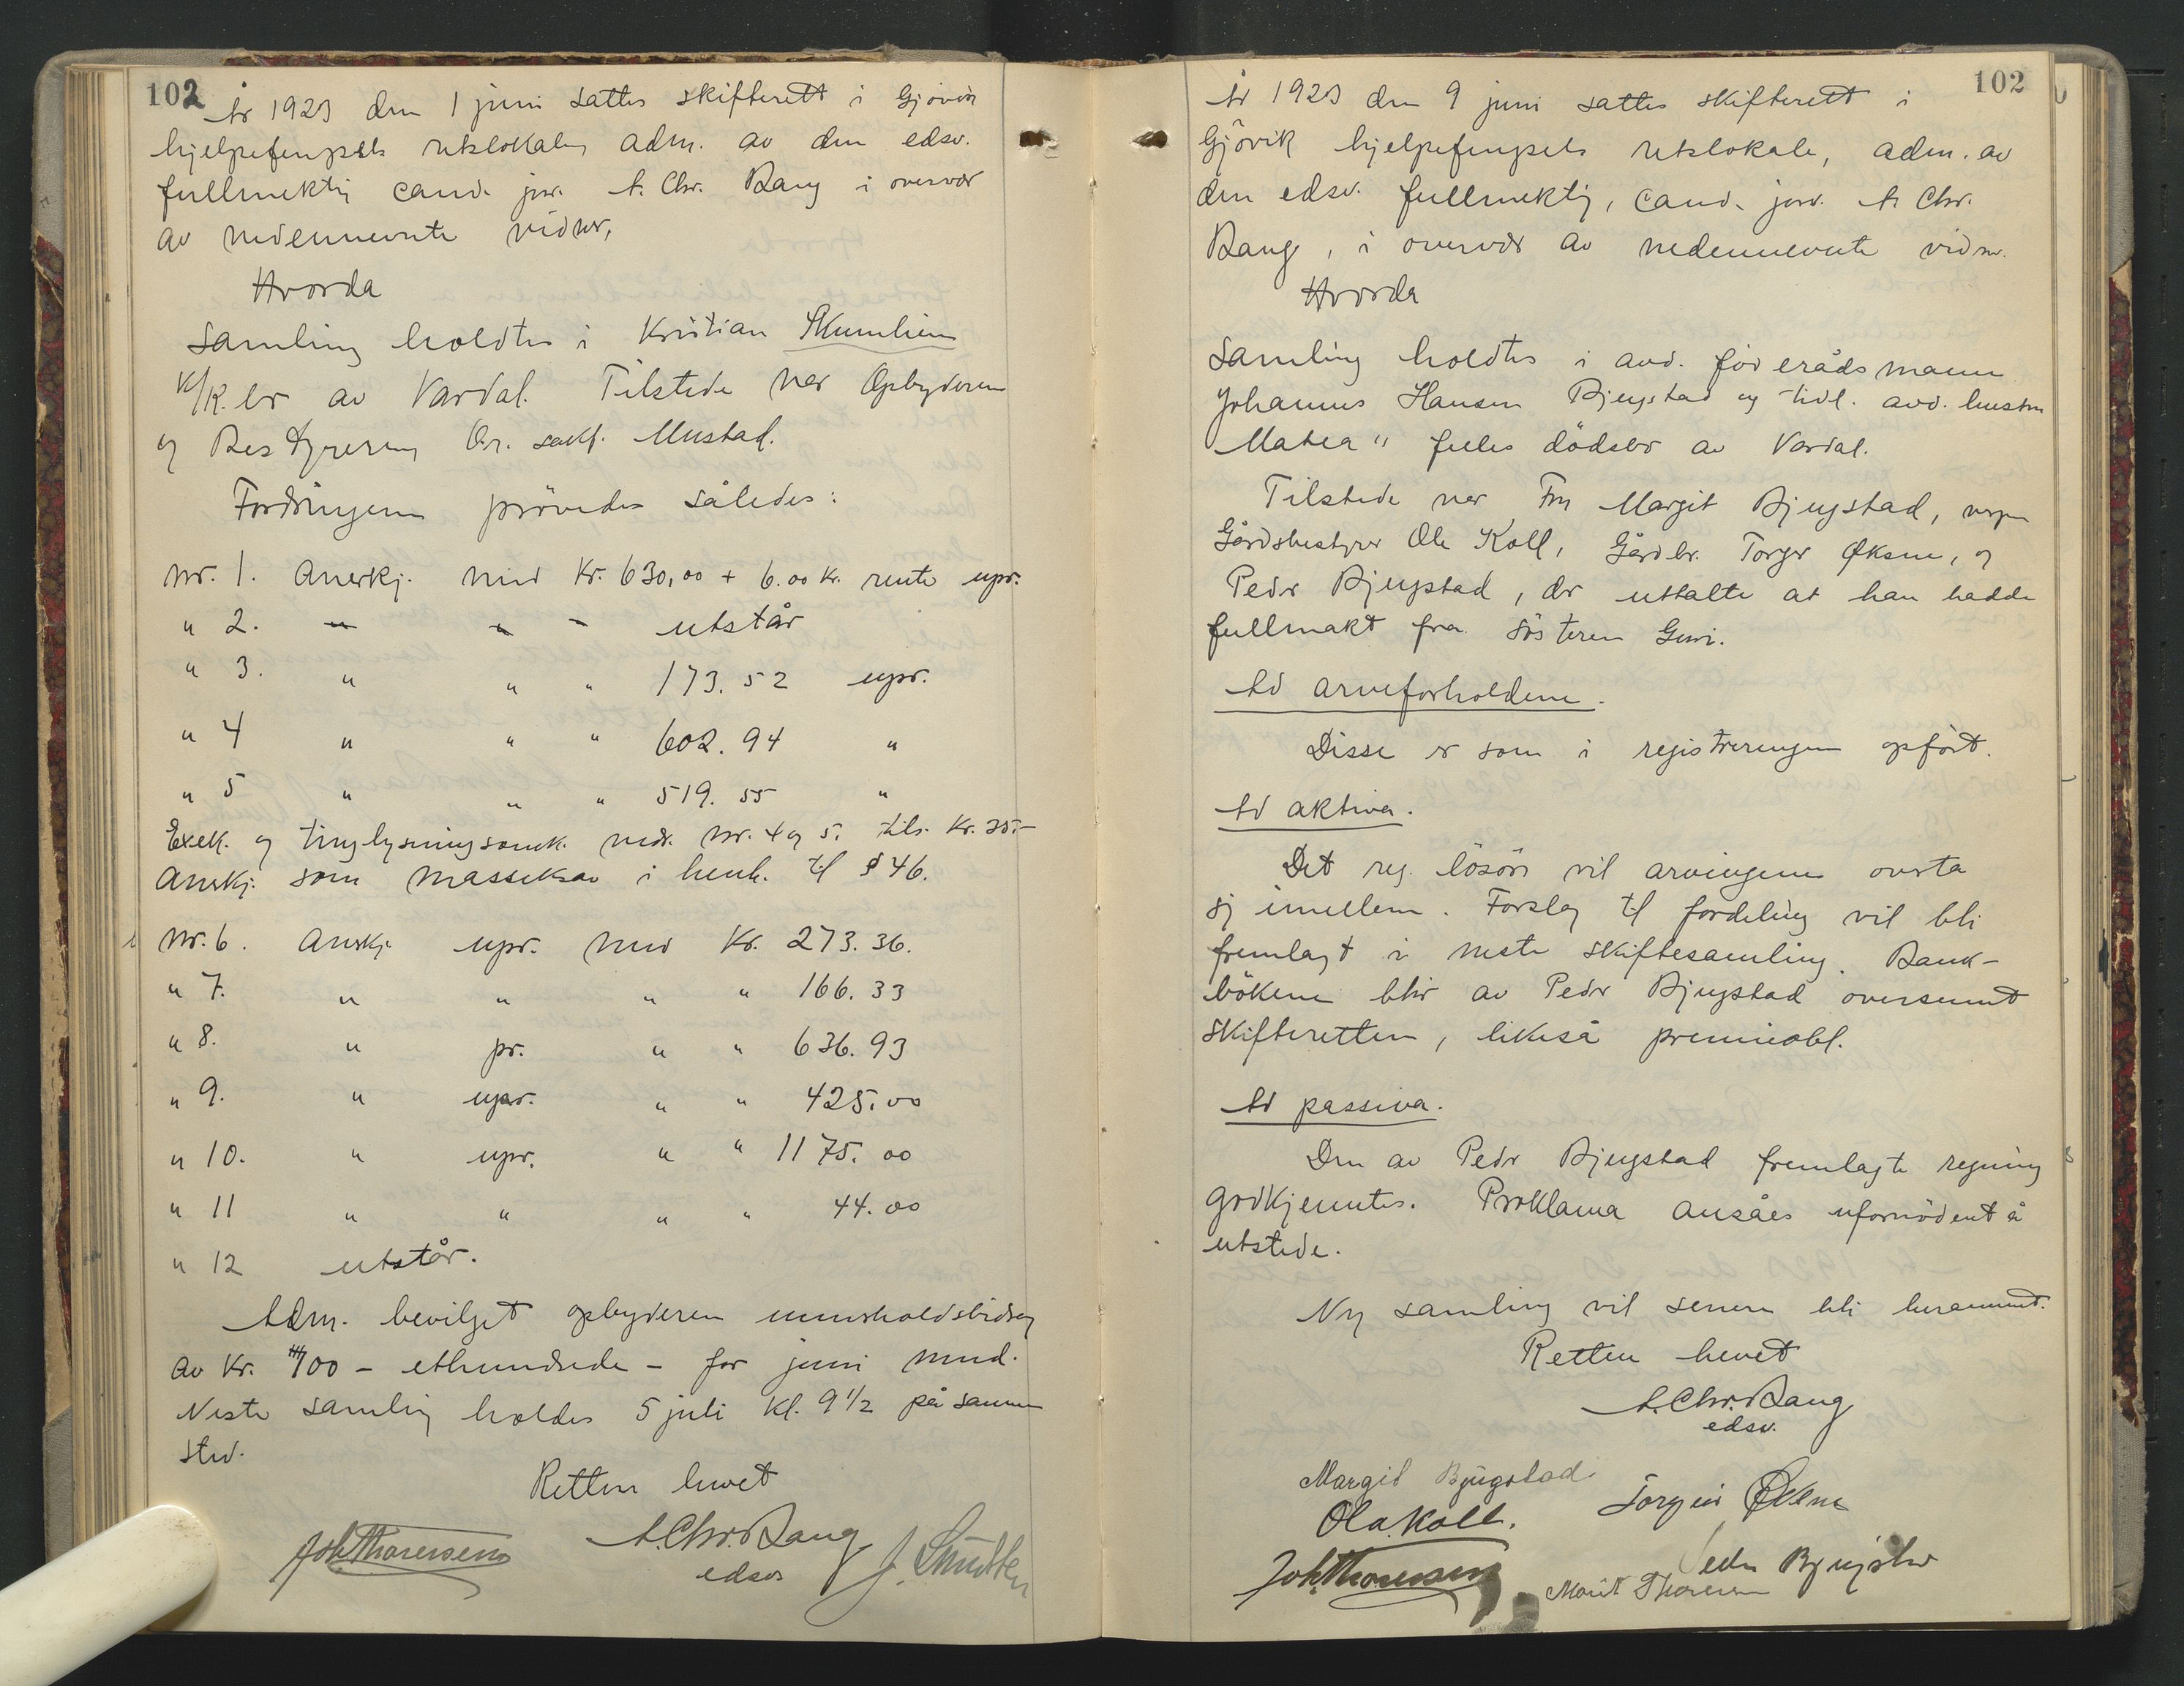 102
År 1923 den 1 juni sattes skifterett i Gjövik
hjelpefengsels retslokale, adm. av den edsv.
fullmektig cand. jur. A. Chr. Bang i overvær
av nedennevnte vidner,
Hvorda
Samling holdtes i Kristian Skumliens
K/K.bo av Vardal. Tilstede var Opbyderen
og Bestyreren Or. sakf. Mustad.
Fordringene prövedes således:
Nr. 1. Anerkj. med Kr. 630,00 + 6.00 kr. rente upr.
" 2. " " " utstår
" 3. " " " 173.52 upr.
" 4 " " " 602.94 "
" 5 " " " 519.55 "
Exek. og tinglysningsomk. vedr. nr. 4 og 5. tils. Kr. 35.-
Anerkj. som massekrav i henh. til § 46.
Nr. 6. Anerkj. upr. med Kr. 273.36.
" 7. " " " " 166.33
" 8. " pr. " " 636.93
" 9. " upr. " " 425.00
" 10. " upr. " " 1175.00
" 11 " " " " 44.00
" 12 utstår.
Adm. bevilget opbyderen underholdsbidrag
av Kr. 100 - ethundrede - for juni mnd.
Neste samling holdes 5 juli kl. 9 1/2 på samme
sted.
Retten hevet
A. Chr. Bang
edsv
Joh. Thoresen
102
År 1923 den 9 juni sattes skifterett i
Gjövik hjelpefengsels retslokale, adm. av
den edsv. fullmektig, cand. jur. A. Chr.
Bang, i overvær av nedennevnte vidner.
Hvorda
Samling holdtes i avd. föderådsmann
Johannes Hansen Bjugstad og tidl. avd. hustru
Matea " felles dödsbo av Vardal.
Tilstede var Fru Margit Bjugstad, verge
Gårdsbestyrer Ole Koll, Gårdbr. Torger Øksne, og
Peder Bjugstad, der uttalte at han hadde
fullmakt fra sösteren Guri.
Ad arveforholdene.
Disse er som i registreringen opfört.
Ad aktiva.
Det reg. lösöre vil arvingene overta
sig imellem. Forslag til fordeling vil bli
fremlagt i neste skiftesamling. Bank-
bökene blir av Peder Bjugstad oversendt
skifteretten, likeså premieobl.
Ad passiva.
Den av Peder Bjugstad fremlagte regning
godkjentes. Proklama ansåes ufornödent å
utstede.
Ny samling vil senere bli berammet.
Retten hevet
A. Chr. Bang
edsv.
Margit Bjugstad
Torger Øksne
Ola Koll.
Peder Bjugstad
Joh. Thoresen
Marit Thoresen